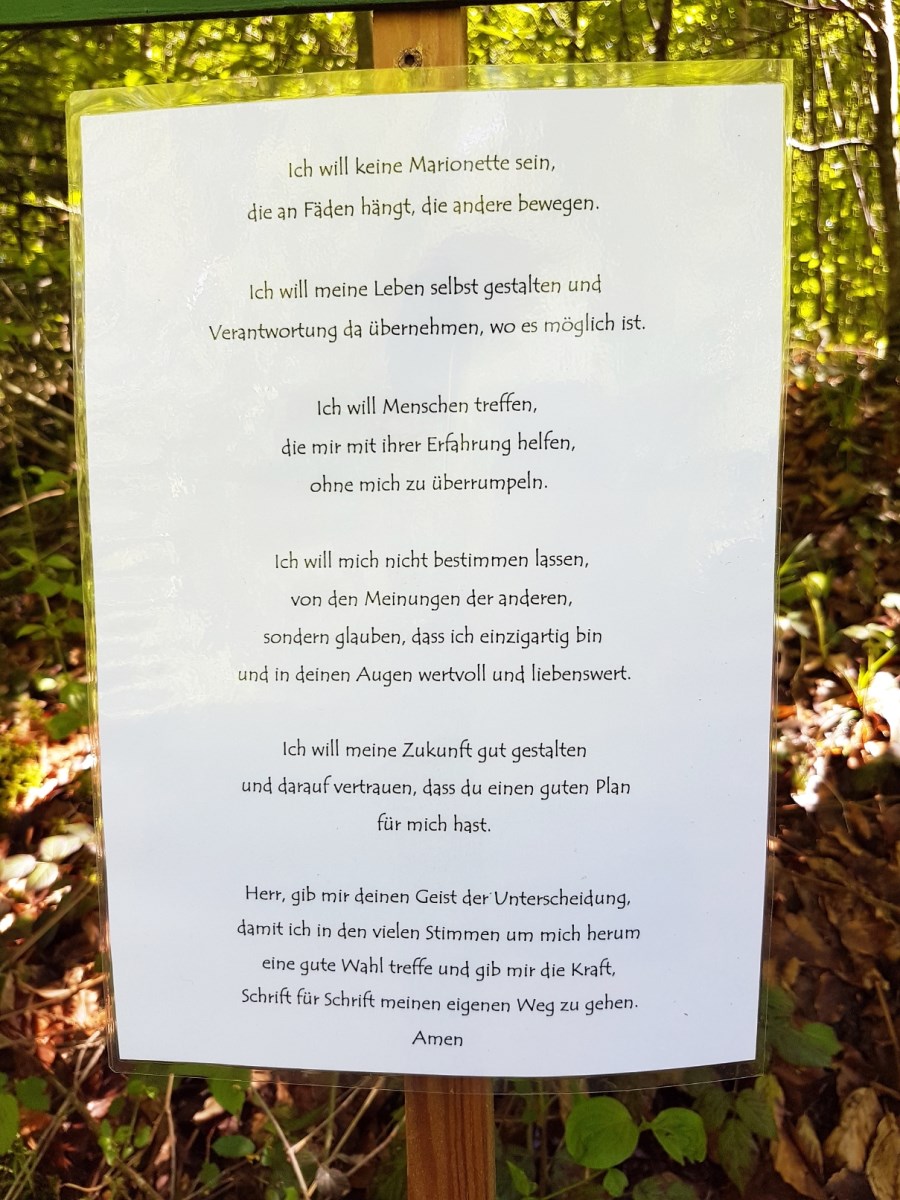 Ich will keine Marionette sein,
die an Fäden hängt, die andere bewegen.
Ich will meine Leben selbst gestalten und
Verantwortung da übernehmen, wo es möglich ist.
Ich will Menschen treffen,
die mir mit ihrer Erfahrung helfen,
ohne mich zu überrumpeln.
Ich will mich nicht bestimmen lassen,
von den Meinungen der anderen,
sondern glauben, dass ich einzigartig bin
und in deinen Augen wertvoll und liebenswert.
Ich will meine Zukunft gut gestalten
und darauf vertrauen, dass du einen guten Plan
für mich hast.
Herr, gib mir deinen Geist der Unterscheidung,
damit ich in den vielen Stimmen um mich herum
eine gute Wahl treffe und gib mir die Kraft,
Schrift für Schrift meinen eigenen Weg zu gehen.
Amen